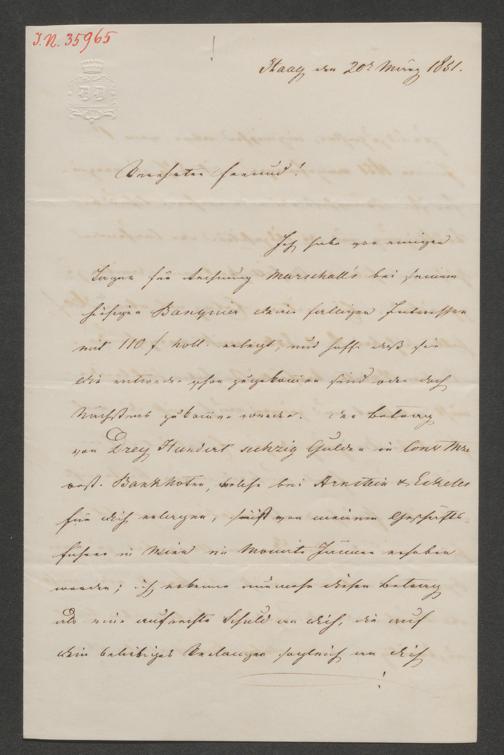 I.N. 35965
Haag den 20t März 1851.
Verehrter Freund!
Ich habe vor einigen
Tagen für Rechnung Marschall's bei seinem
hiesigen Banquier deine fälligen Interessen
mit 110 f holl. erlegt, und hoffe daß sie
dir entweder schon zugekommen sind oder doch
Nächstens zukommen werden. Der Betrag
von Drey Hundert sechzig Gulden in Conv Mze
oest. Banknoten, welche bei Arnstein & Eskeles
für dich erlagen, ist von meinem Geschäfts-
führer in Wien im Monate Jänner erhoben
worden; ich erkenne nunmehr diesen Betrag
als eine aufrechte Schuld an dich, die auf
dein beliebiges Verlangen sogleich an dich